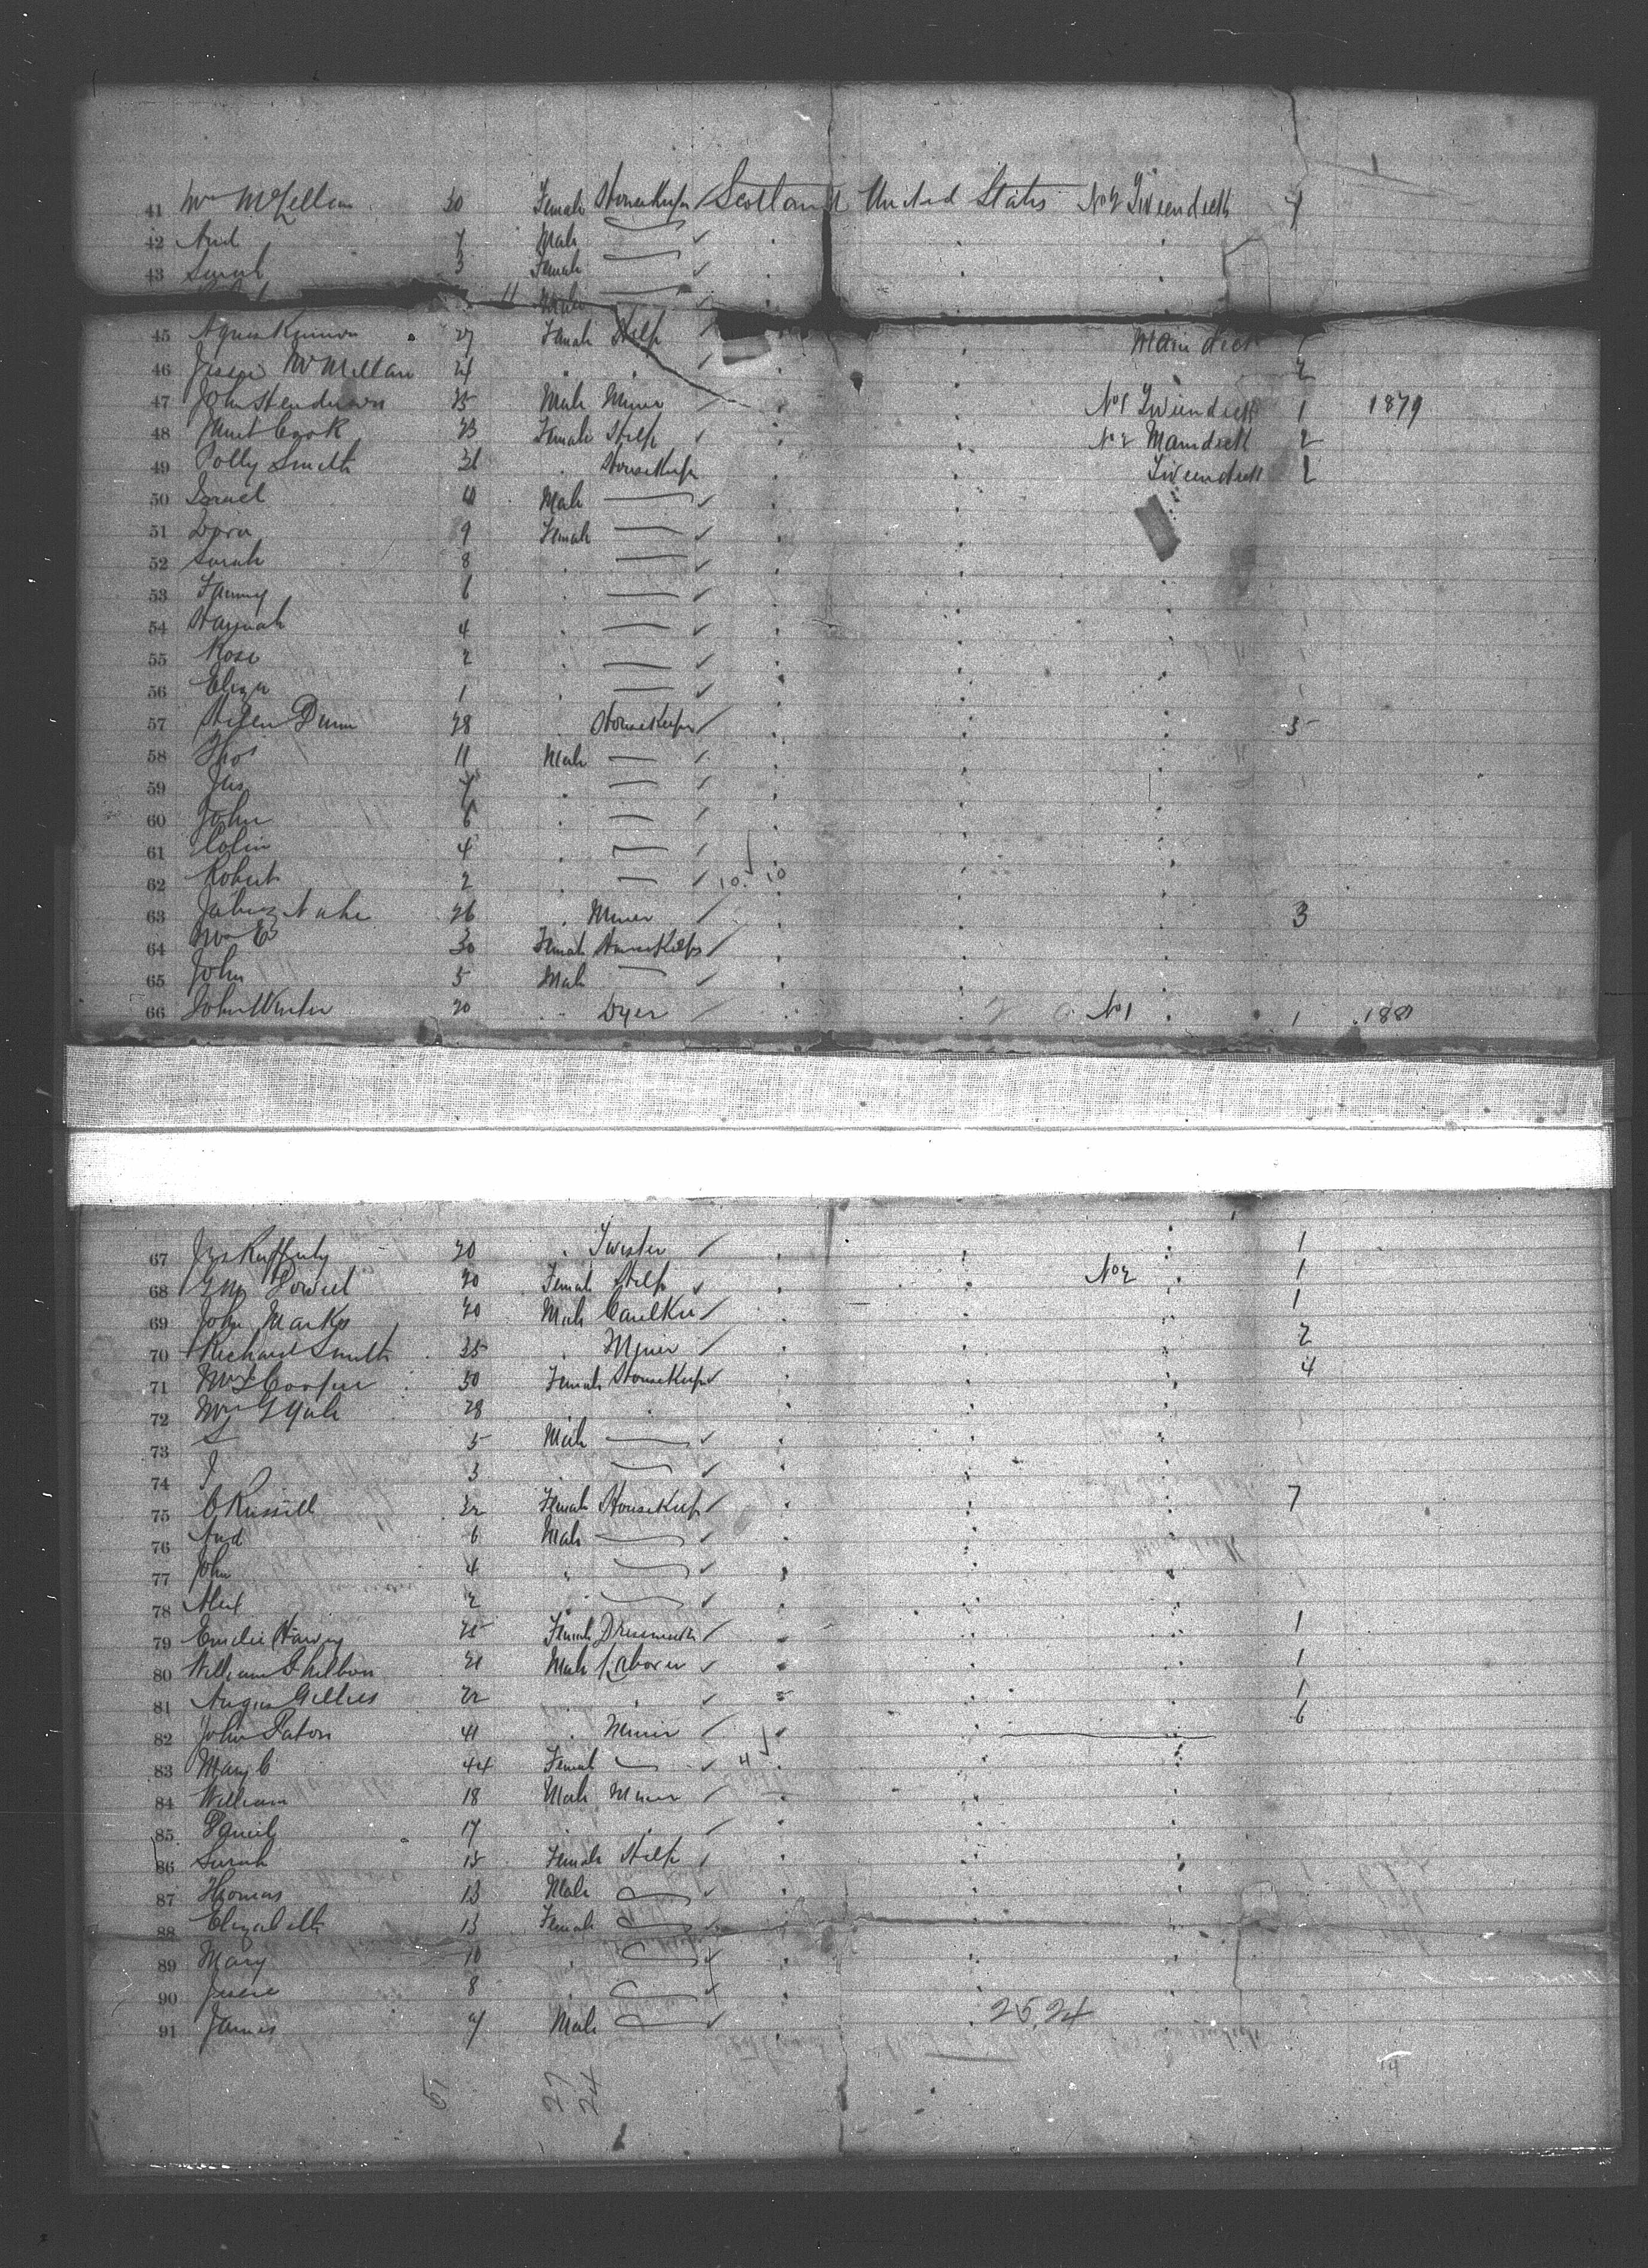 41 Mrs McLellan 30 Female HouseKeepr Scotland United States No 2 Tweendeck 4
42 And 7 Male
43 Sarah 3 Female
11 Male
45 Agnes Kinnon 27 Female Help Main deck
46 Jessie McMillan 24 " " 2
47 John Henderson 25 Male Miner No 1 Tweendeck 1 1879
48 Janet Cook 23 Female Help No 2 Maindeck 2
49 Polly Smith 36 " HouseKeepr Tweendeck 1
50 Israel 10 Male
51 Dora 9 Female
52 Sarah 8 "
53 Fanny 6 "
54 Hannah 4 "
55 Rose 2 "
56 Eliza 1 "
57 Helen Dunn 28 " HouseKeepr 5
58 Thos 11 Male
59 Jas 7 "
60 John 6 "
61 Colin 4 "
62 Robert 2 " 10 10
63 Jabez 26 " Miner 3
64 Mrs E 30 Female HouseKeepr
65 John 5 Male
66 John Winter 20 " Dyer No 1 1
67 Jas Rafferty 20 " Twister 1
68 20 Female Help No 2 1
69 John Marks 20 Male Caulker 1
70 Richard Smith 35 " Miner 2
71 Cooper 50 Female HouseKeepr 4
72 Mrs 28 "
73 S 5 Male
74 J 3 "
75 C Russell 32 Female HouseKeepr 7
76 And 6 Male
77 John 4 "
78 Alex 2 "
79 Harvey 25 Female Dressmaker 1
80 William 21 Male Laborer 1
81 Angus Gillies 22 " " 1
82 John Paton 41 " Miner 6
83 Mary C 44 Female 4
84 William 18 Male Miner
85 Daniel 17 " "
86 Sarah 15 Female Help
87 Thomas 13 Male
88 Elizabeth 13 Female
89 Mary 10 "
90 Jessie 8 "
91 James 7 Male 25.24
51 27
24
14